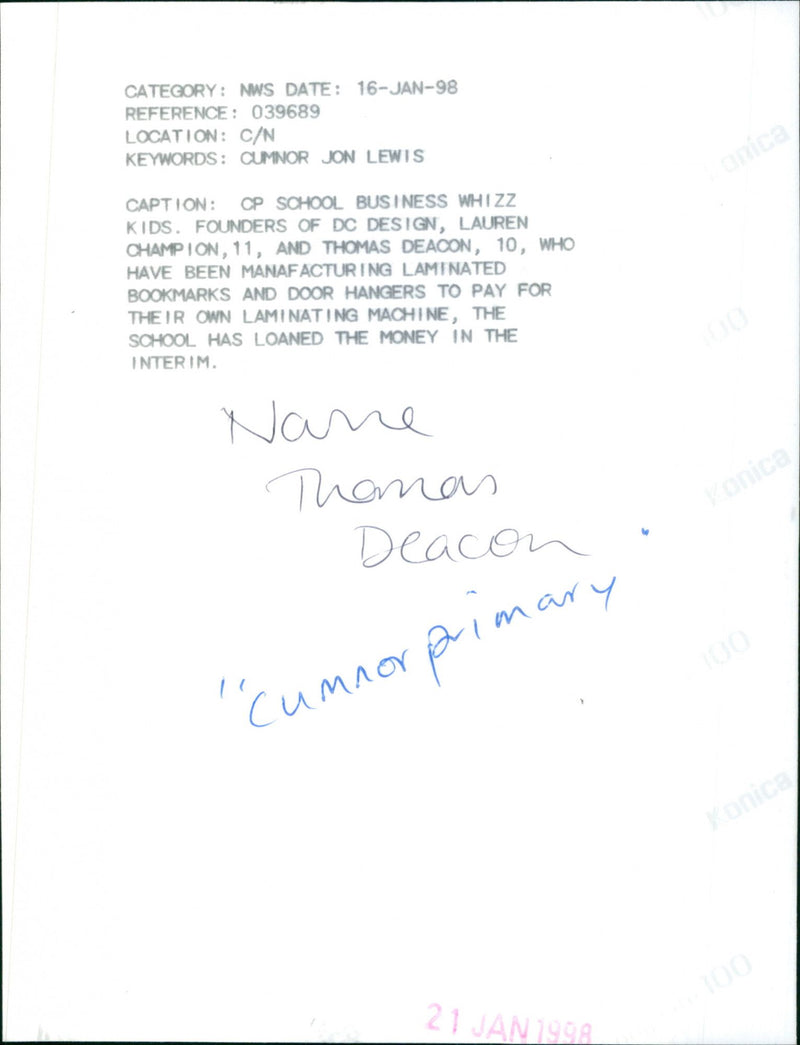 CATEGORY: NWS DATE: 16-JAN-98
REFERENCE: 039689
LOCATION: C/N
KEYWORDS: CUMNOR JON LEWIS
CAPTION: CP SCHOOL BUSINESS WHIZZ
KIDS. FOUNDERS OF DC DESIGN, LAUREN
CHAMPION,11, AND THOMAS DEACON, 10, WHO
HAVE BEEN MANAFACTURING LAMINATED
BOOKMARKS AND DOOR HANGERS TO PAY FOR
THEIR OWN LAMINATING MACHINE, THE
SCHOOL HAS LOANED THE MONEY IN THE
INTERIM.
Name
Thomas
Deacon
"Cumnor primary"
21 JAN 1998
100
Konica
100
Konica
100
Konica
100